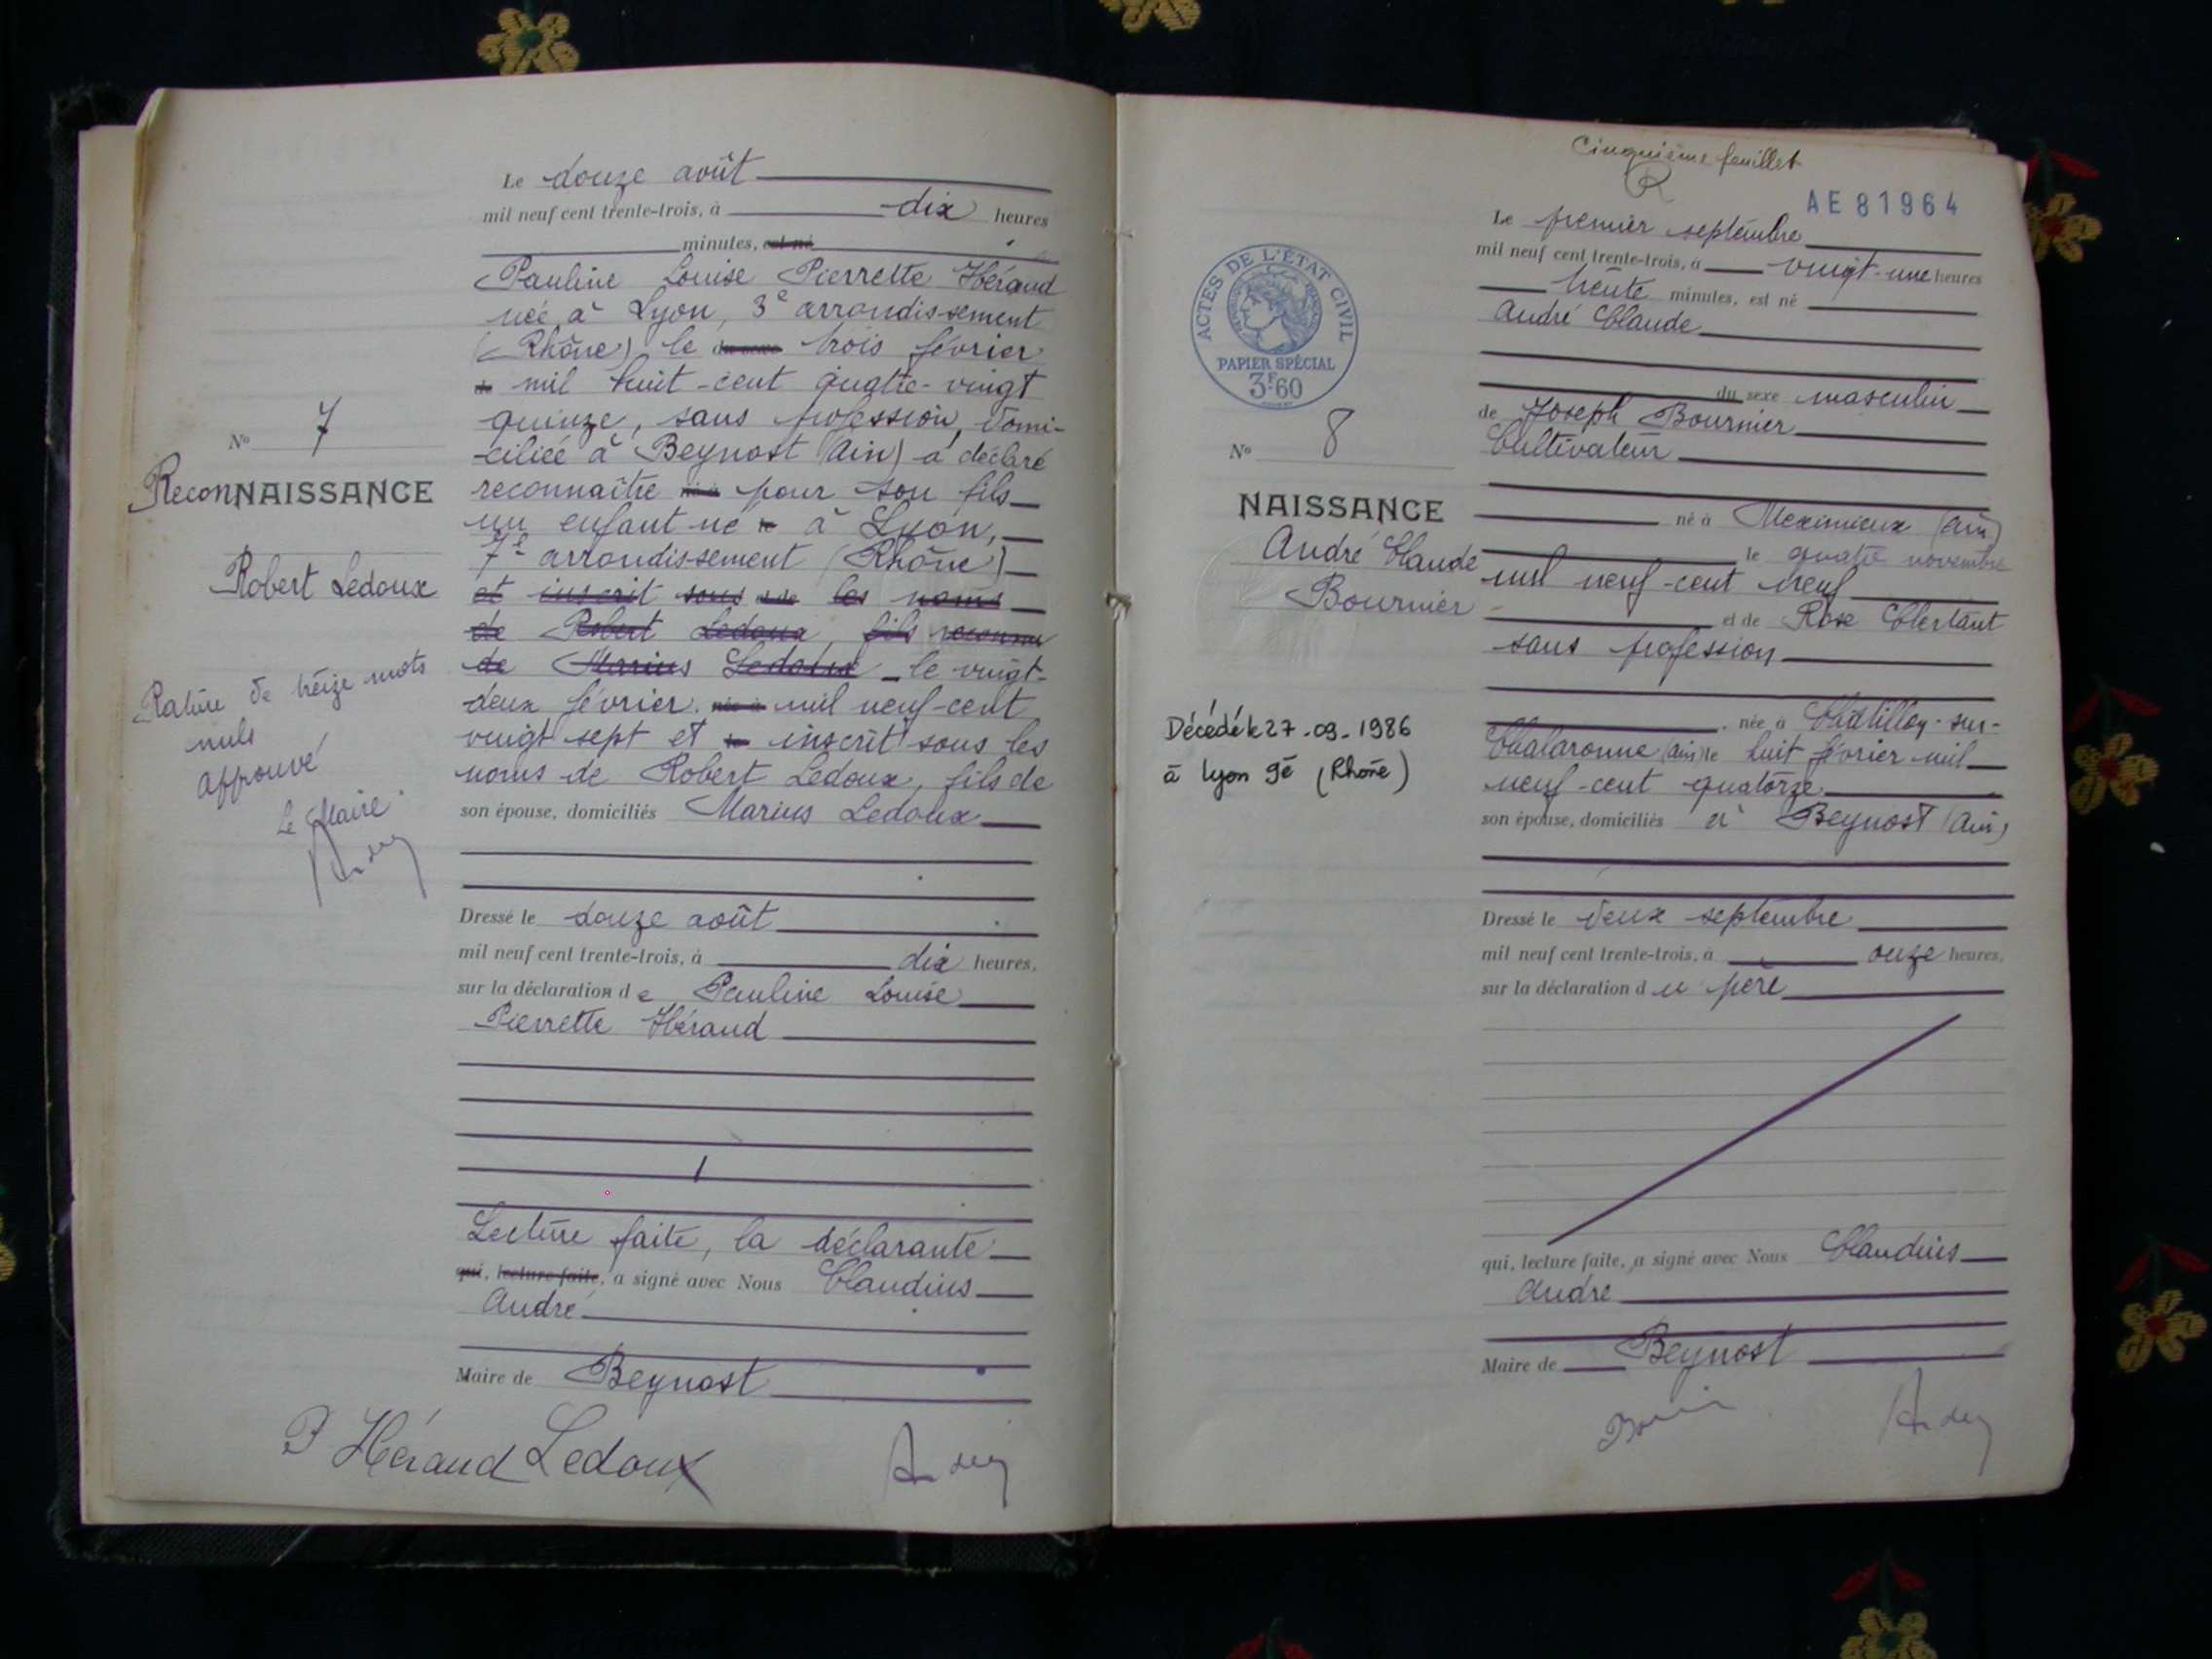 Le douze août
mil neuf cent trente-trois, à dix heures
minutes, est né
Pauline Louise Pierrette Héraud
née à Lyon, 3e arrondissement
(Rhône) le trois février
mil huit-cent quatre-vingt
quinze, sans profession, domi-
ciliée à Beynost (Ain) a déclaré
reconnaître pour son fils
un enfant né à Lyon,
7e arrondissement (Rhône)
et inscrit sous les noms
de Robert Ledoux, fils reconnu
de Marius Ledoux le vingt-
deux février mil neuf-cent
vingt sept et inscrit sous les
noms de Robert Ledoux, fils de
son épouse, domiciliés Marius Ledoux
Dressé le douze août
mil neuf cent trente-trois, à dix heures,
sur la déclaration de Pauline Louise
Pierrette Héraud
Lecture faite, la déclarante
qui, lecture faite, a signé avec Nous Claudius
André
Maire de Beynost
P Héraud Ledoux
No 7
ReconNAISSANCE
Robert Ledoux
Rature de treize mots
nuls
approuvé
Le Maire
Cinquième feuillet
AE 81964
ACTES DE L'ÉTAT CIVIL
PAPIER SPÉCIAL
3F60
No 8
NAISSANCE
André Claude
Bournier
Décédé le 27-09-1986
à Lyon 9è (Rhône)
Le premier septembre
mil neuf cent trente-trois, à vingt-une heures
trente minutes, est né
André Claude
du sexe masculin
de Joseph Bournier
Cultivateur
né à Meximieux (Ain)
le quatre novembre
mil neuf-cent neuf
et de Rose Clertant
sans profession
née à Châtillon-sur-
Chalaronne (Ain) le huit février mil
neuf-cent quatorze
son épouse, domiciliés à Beynost (Ain)
Dressé le deux septembre
mil neuf cent trente-trois, à onze heures,
sur la déclaration du père
qui, lecture faite, a signé avec Nous Claudius
André
Maire de Beynost